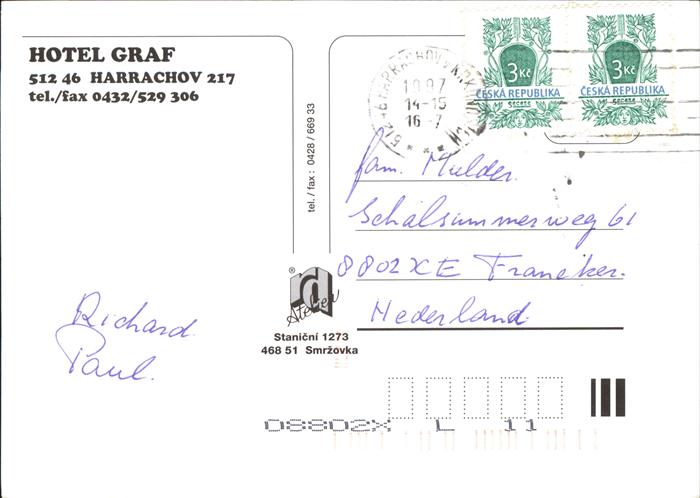 HOTEL GRAF
512 46 HARRACHOV 217
tel./fax 0432/529 306
3Kč
ČESKÁ REPUBLIKA
Secese
3Kč
ČESKÁ REPUBLIKA
Secese
HARRACHOV
1997
14-15
16-7
tel./fax: 0428 / 669 33
Fam. Mulder.
Schalsummerweg 61
8802XE Franeker.
Nederland
Richard
Paul.
® d
Atelier
Staniční 1273
468 51 Smržovka
08802X L 11